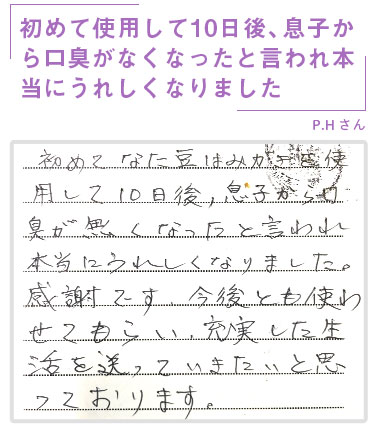 初めて使用して10日後、息子か
ら口臭がなくなったと言われ本
当にうれしくなりました
P.Hさん
初めてなた豆はみがきを使
用して10日後,息子から口
臭が無くなったと言われ
本当にうれしくなりました。
感謝です、今後とも使わ
せてもらい、充実した生
活を送っていきたいと思
っております。